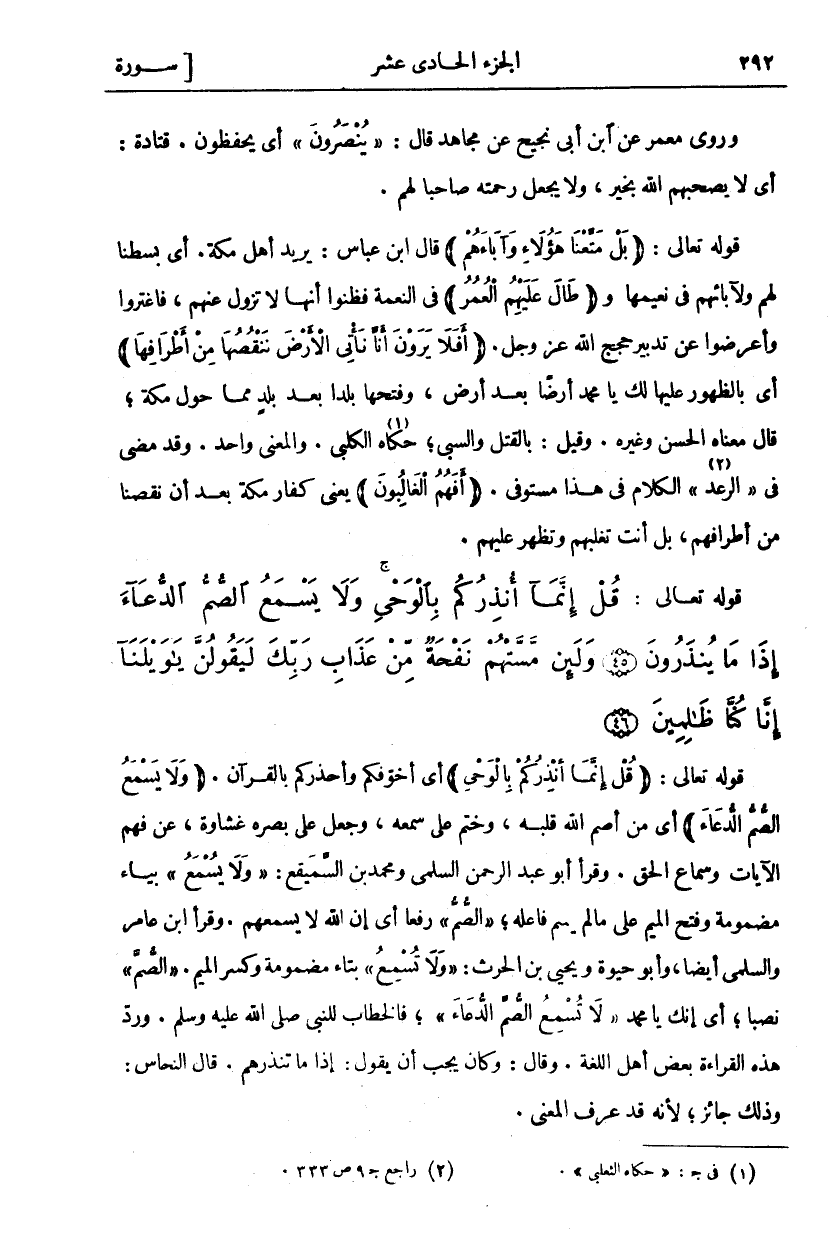 ٢٩٢ الجزء الحادى عشر [ ســورة
وروى معمر عن ٱبن أبى نجيح عن مجاهد قال : « يُنْصَرُونَ » أى يحفظون . قتادة :
أى لا يصحبهم الله بخير ، ولا يجعل رحمته صاحبا لهم .
قوله تعالى : ﴿ بَلْ مَتَّعْنَا هَؤُلَاءِ وَآبَاءَهُمْ ﴾ قال ابن عباس : يريد أهل مكة. أى بسطنا
لهم ولآبائهم فى نعيمها و ﴿ طَالَ عَلَيْهِمُ الْعُمُرُ ﴾ فى النعمة فظنوا أنهــا لا تزول عنهم ، فاغتروا
وأعرضوا عن تدبير حجج الله عز وجل. ﴿ أَفَلَا يَرَوْنَ أَنَّا نَأْتِى الْأَرْضَ نَنْقُصُهَا مِنْ أَطْرَافِهَا ﴾
أى بالظهور عليها لك يا محمد أرضًا بعــد أرض ، وفتحها بلدا بعــد بلدٍ ممــا حول مكة ؛
قال معناه الحسن وغيره . وقيل : بالقتل والسبى؛ حكاه(١) الكلبى . والمعنى واحد . وقد مضى
فى « الرعد(٢) » الكلام فى هــذا مستوفى . ﴿ أَفَهُمُ الْغَالِبُونَ ﴾ يعنى كفار مكة بعــد أن نقصنا
من أطرافهم، بل أنت تغلبهم وتظهر عليهم .
قوله تعــالى : قُلْ إِنَّمَآ أُنذِرُكُم بِٱلْوَحْىِ ۚ وَلَا يَسْمَعُ ٱلصُّمُّ ٱلدُّعَآءَ
إِذَا مَا يُنذَرُونَ ﴿٤٥﴾ وَلَئِن مَّسَّتْهُمْ نَفْحَةٌ مِّنْ عَذَابِ رَبِّكَ لَيَقُولُنَّ يَٰوَيْلَنَآ
إِنَّا كُنَّا ظَٰلِمِينَ ﴿٤٦﴾
قوله تعالى : ﴿ قُلْ إِنَّمَا أُنْذِرُكُمْ بِالْوَحْىِ ﴾ أى أخوّفكم وأحذركم بالقــرآن . ﴿ وَلَا يَسْمَعُ
الصُّمُّ الدُّعَاءَ ﴾ أى من أصم الله قلبــه ، وختم على سمعه ، وجعل على بصره غشاوة ، عن فهم
الآيات وسماع الحق . وقرأ أبو عبد الرحمن السلمى ومحمد بن السَّمَيقع: « وَلَا يُسْمَعُ » بيــاء
مضمومة وفتح الميم على مالم يسم فاعله؛ «الصُّمُّ» رفعا أى إن الله لا يسمعهم . وقرأ ابن عامر
والسلمى أيضا، وأبو حيوة ويحيى بن الحرث: «وَلَا تُسْمِعُ» بتاء مضمومة وكسر الميم . «الصُّمَّ»
نصبا ؛ أى إنك يا محمد « لَا تُسْمِعُ الصُّمَّ الدُّعَاءَ » ؛ فالخطاب للنبى صلى الله عليه وسلم . وردّ
هذه القراءة بعض أهل اللغة . وقال : وكان يجب أن يقول: إذا ما تنذرهم . قال النحاس:
وذلك جائز ؛ لأنه قد عرف المعنى .
(١) فى جـ : « حكاه الثعلبى » . (٢) راجع جـ ٩ ص ٣٣٣ .